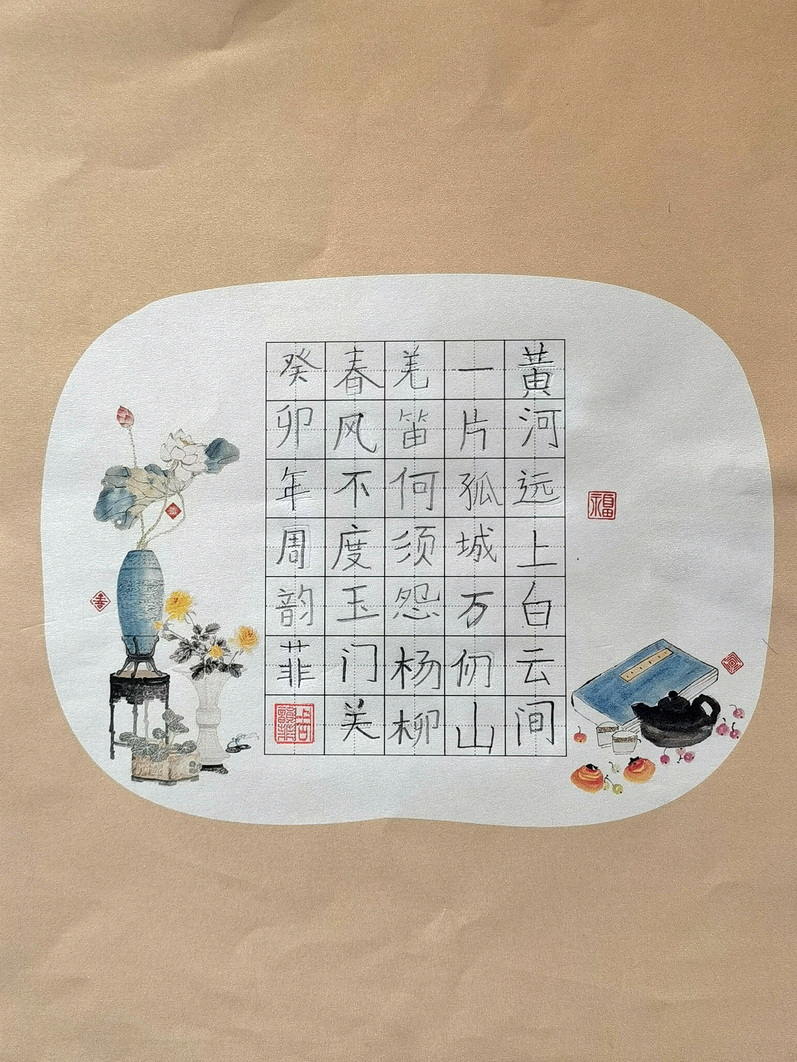 黄河远上白云间
一片孤城万仞山
羌笛何须怨杨柳
春风不度玉门关
癸卯年周韵菲
福